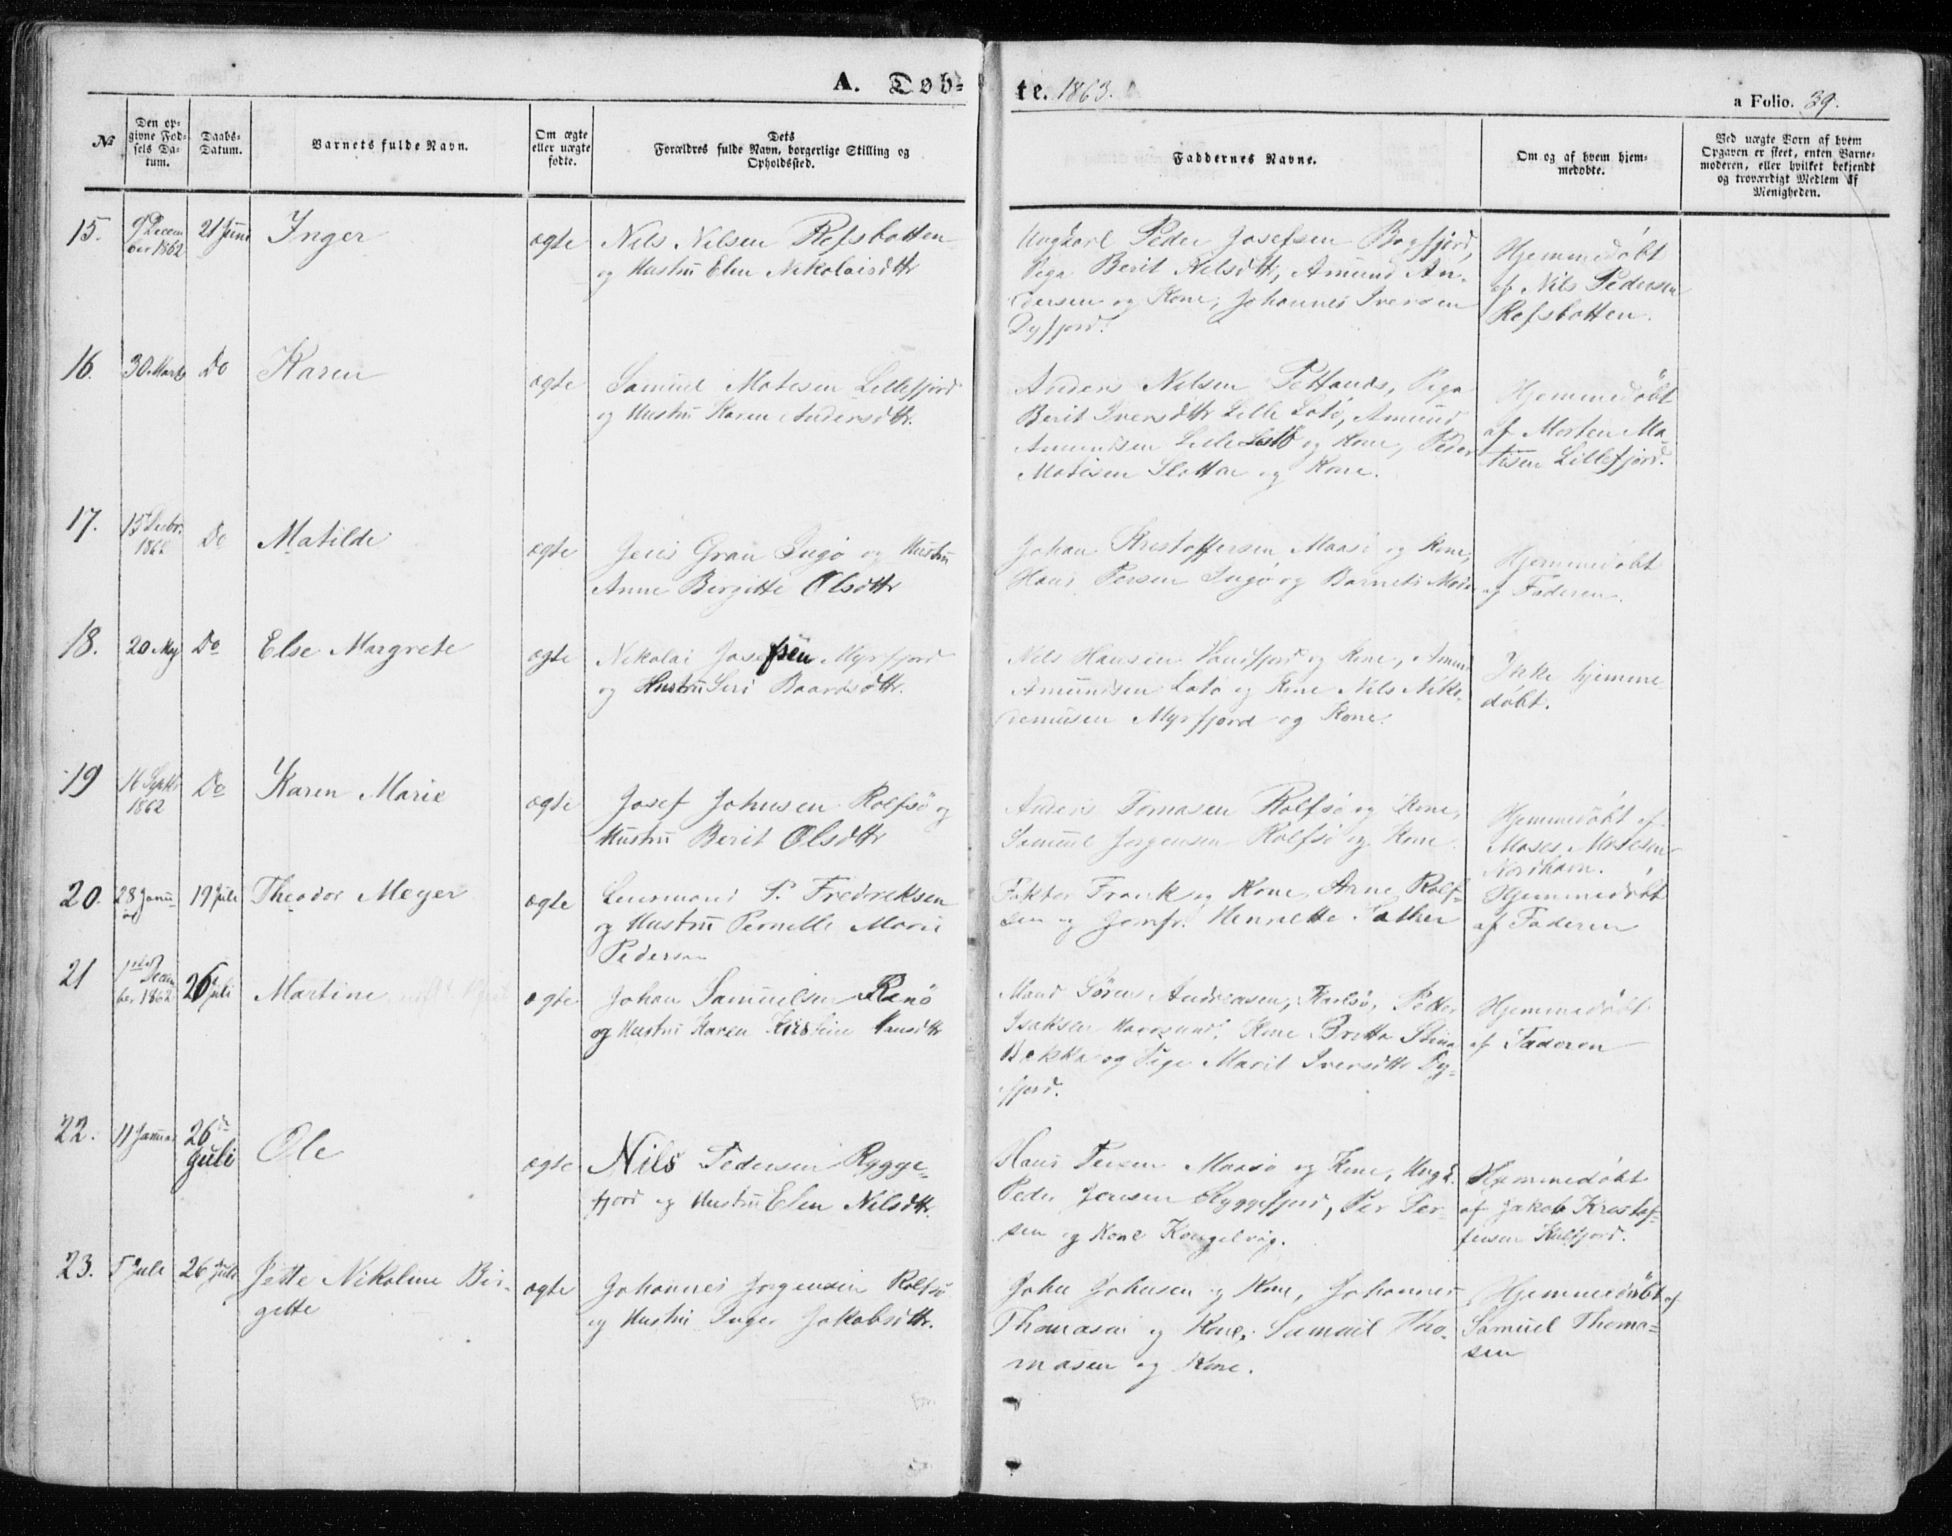 A. Døb-
te. 1863.
a Folio. 39.
№
Den op-
givne Fød-
sels Da-
tum.
Daabs-
Datum.
Barnets fulde Navn.
Om ægte
eller uægte
fødte.
Dets
Forældres fulde Navn, borgerlige Stilling og
Opholdssted.
Faddernes Navne.
Om og af hvem hjem-
medøbte.
Ved uægte Børn af hvem
Opgaven er skeet, enten Barne-
moderen, eller hvilket bekjendt
og troværdigt Medlem af
Menigheden.
15.
9 Decem
ber 1862
21 Juni
Inger
ægte
Nils Nilsen Refsbotten
og Hustru Elen Nikolaisdttr
Ungkarl Peder Josefsen Bogfjord,
Pige Berit Nilsdttr, Amund An-
dersen og Kone, Johannes Iversen
Dyfjord.
Hjemmedøbt
af Nils Pedersen
Refsbotten.
16.
30 Marts
Do
Karen
ægte
Samuel Matisen Lillefjord
og Hustru Karen Andersdttr.
Anders Nilsen Pige
Berit Iversdttr Lille Latø, Amund
Amundsen Lille Latø og Kone, Peder
Matisen Slotten og Kone.
Hjemmedøbt
af Morten Ma
tisen Lillefjord.
17.
15 Decbr.
1862
Do
Matilde
ægte
Jens Gran Ingø og Hustru
Anne Bergitte Olsdttr
Johan Kristoffersen Maasø og Kone,
Hans Persen Ingø og Barnets Moder
Hjemmedøbt
af Faderen.
18.
20 Maj
Do
Else Margrete
ægte
Nikolai Josefsen Myrfjord
og Hustru Siri Baardsdttr.
Nils Hansen og Kone, Amund
Amundsen Latø og Kone Nils Niko-
demusen Myrfjord og Kone.
Ikke hjemme-
døbt.
19
16 Septbr
1862
Do
Karen Marie
ægte
Josef Johnsen Rolfsø og
Hustru Berit Olsdttr
Anders Tomasen Rolfsø og Kone,
Samuel Jørgensen Rolfsø og Kone
Hjemmedøbt af
Moses Mosesen
20.
28 Janu
ar
19 Juli
Theodor Meyer
ægte
Lensmand P. Fredreksen
og Hustru Pernelle Marie
Pedersen
Faktor Frank og Kone, Arne Rolf-
sen og Jomfr. Henriette Sather
Hjemmedøbt
af Faderen
21
1ste Decem
ber 1862
26 Juli
Martine
ægte
Johan Samuelsen Renø
og Hustru Karen Kirstine Hansdttr
Mand Søren Andreasen, Petter
Isaksen Havøsund, Kone Britta Stina
Bakka og Pige Marit Iversdttr Dy-
fjord.
Hjemmedøbt
af Faderen
22.
11 Januar
26de
Juli
Ole
ægte
Nils Pedersen Rygge-
fjord og Hustru Elen Nilsdttr.
Hans Persen Maasø og Kone, Ungk.
Peder Jensen Ryggefjord, Per Per-
sen og Kone Kongelvig.
Hjemmedøbt
af Jakob Kristof-
fersen Kulfjord.
23.
5 Juli
26 Juli
Jette Nikoline Bir-
gette
ægte
Johannes Jørgensen Rolfsø
og Hustru Inger Jakobsdttr.
John Johnsen og Kone, Johannes
Thomasen og Kone, Samuel Tho-
masen og Kone.
Hjemmedøbt af
Samuel Thoma-
sen